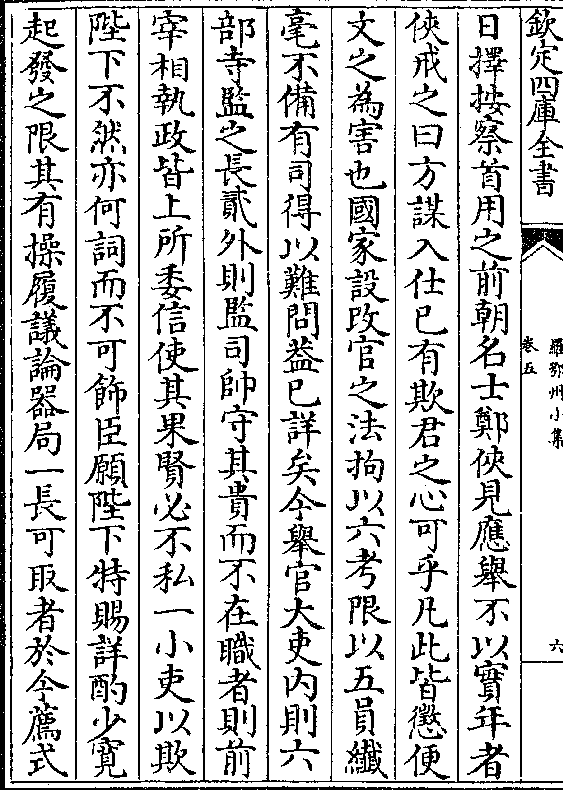 欽定四庫全書
羅鄂州小集
卷五
六
日擇按察首用之前朝名士鄭俠見應舉不以實年者
俠戒之曰方謀入仕已有欺君之心可乎凡此皆懲便
文之為害也國家設改官之法拘以六考限以五員纖
毫不備有司得以難問葢已詳矣今舉官大吏内則六
部寺監之長貳外則監司帥守其貴而不在職者則前
宰相執政皆上所委信使其果賢必不私一小吏以欺
陛下不然亦何詞而不可飾臣願陛下特賜詳酌少寛
起發之限其有操履議論器局一長可取者於今薦式